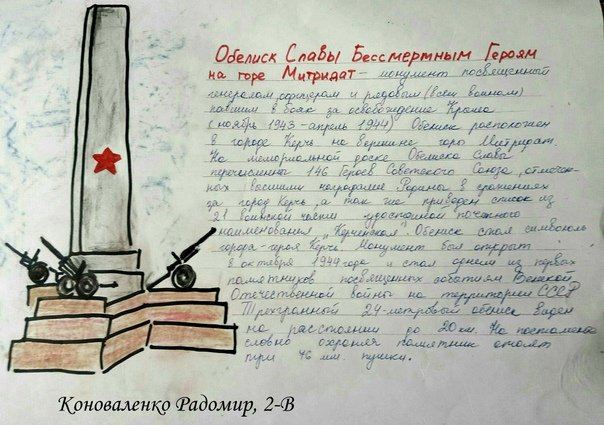 Обелиск Славы Бессмертным Героям
на горе Митридат - монумент посвященный
генералом, офицерам и рядовым (всем воинам)
павшим в боях за освобождение Крыма
(ноябрь 1943 - апрель 1944) Обелиск расположен
в городе Керчь на вершине горы Митридат.
На мемориальной доске Обелиска Славы
перечислены 146 Героев Советского Союза, отмечен-
ных высшими наградами Родины в сражениях
за город Керчь, а так же приведен список из
21 воинской части удостоеной почетного
наименования „Керченская". Обелиск стал символом
города-героя Керчь. Монумент был открыт
8 октября 1944 года и стал одним из первых
памятников посвященных событиям Великой
Отечественной войны на территории СССР
Трехгранный 24-метровый обелиск виден
на расстоянии до 20 км. На постаменте
словно охраняя памятник стоят
три 76 мм. пушки.
Коноваленко Радомир, 2-В